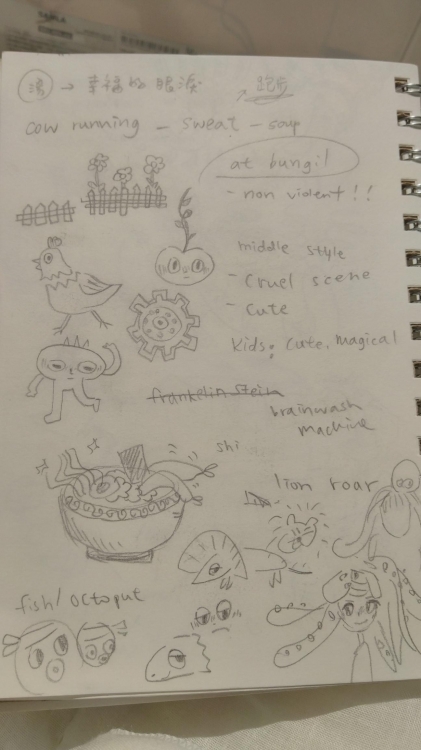 湯 → 幸福的眼淚
跑步
cow running - sweat - soup
at bungil
- non violent!!
middle style
- cruel scene
- cute
kids: cute, magical
frankelin stein
brainwash
machine
shi
lion roar
fish/octoput